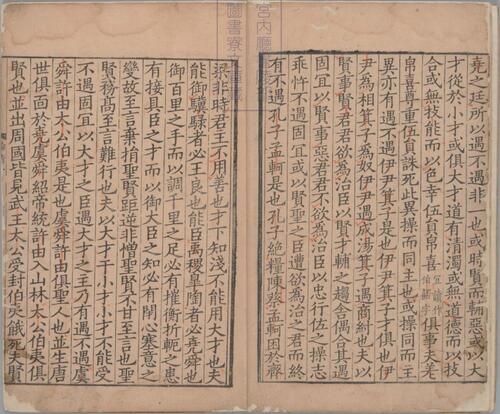 堯之廷所以遇不遇非一也或時賢而輔惡或以大
才從於小才或俱大才道有清濁或無道德而以技
合或無技能而以色幸伍員帛喜宜讀作伯嚭字俱事夫差
帛喜尊重伍員誅死此異操而同主也或操同而主
異亦有遇不遇伊尹箕子是也伊尹箕子才俱也伊
尹為相箕子為奴伊尹遇成湯箕子遇商紂也夫以
賢事賢君君欲為治臣以賢才輔之趨舍偶合其遇
固宜以賢事惡君君不欲為治臣以忠行佐之操志
乖忤不遇固宜或以賢聖之臣遭欲為治之君而終
有不遇孔子孟軻是也孔子絶糧陳蔡孟軻困於齊
梁非時君主不用善也才下知淺不能用大才也夫
能御驥騄者必王良也能臣禹稷臯陶者必堯舜也
御百里之手而以調千里之足必有摧衡折軛之患
有接具臣之才而以御大臣之知必有閉心塞意之
變故至言棄捐聖賢距逆非憎聖賢不甘至言也聖
賢務高至言難行也夫以大才干小才小才不能受
不遇固宜以大才之臣遇大才之主乃有遇不遇虞
舜許由太公伯夷是也虞舜許由俱聖人也並生唐
世俱面於堯虞舜紹帝統許由入山林太公伯夷俱
賢也並出周國皆見武王太公受封伯夷餓死夫賢
宮内廳
圖書寮